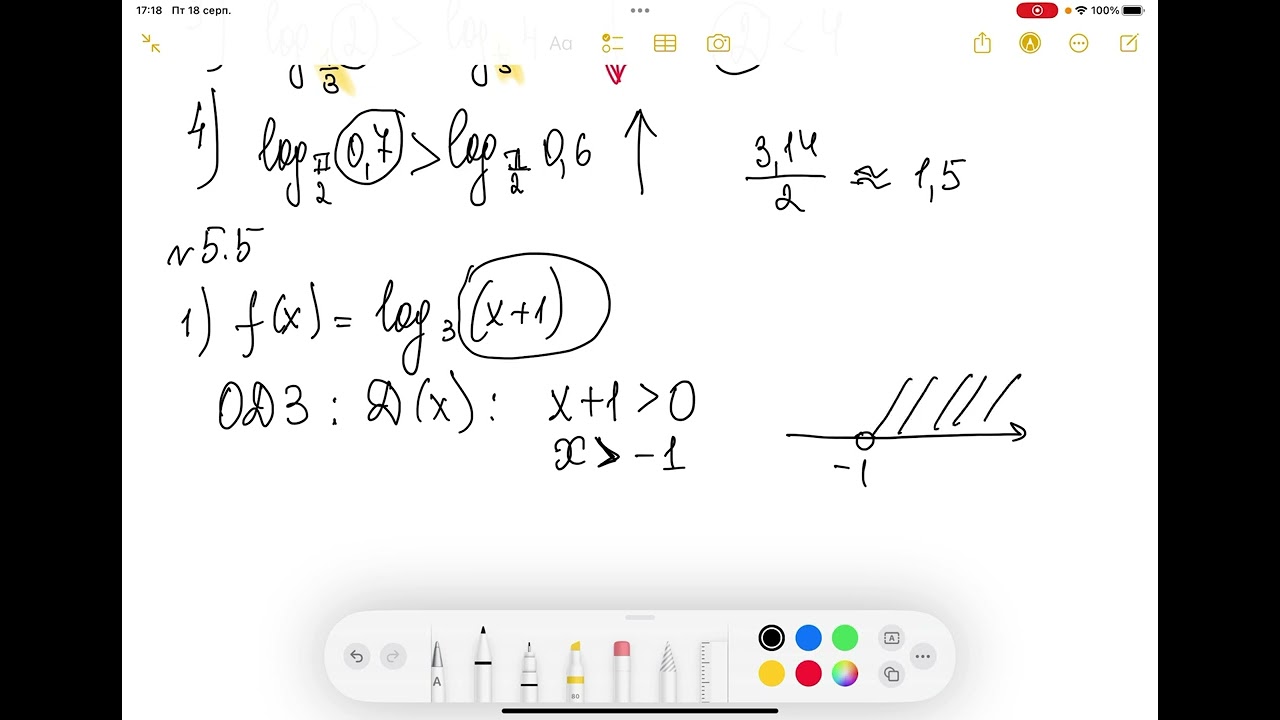 17:18 Пт 18 серп. 100%
Aa
4) log π/2 0,7 > log π/2 0,6 ↑ 3,14/2 ≈ 1,5
№5.5
1) f(x) = log₃(x+1)
ОДЗ : D(x) : x+1 > 0
x > -1
-1
A
80
A